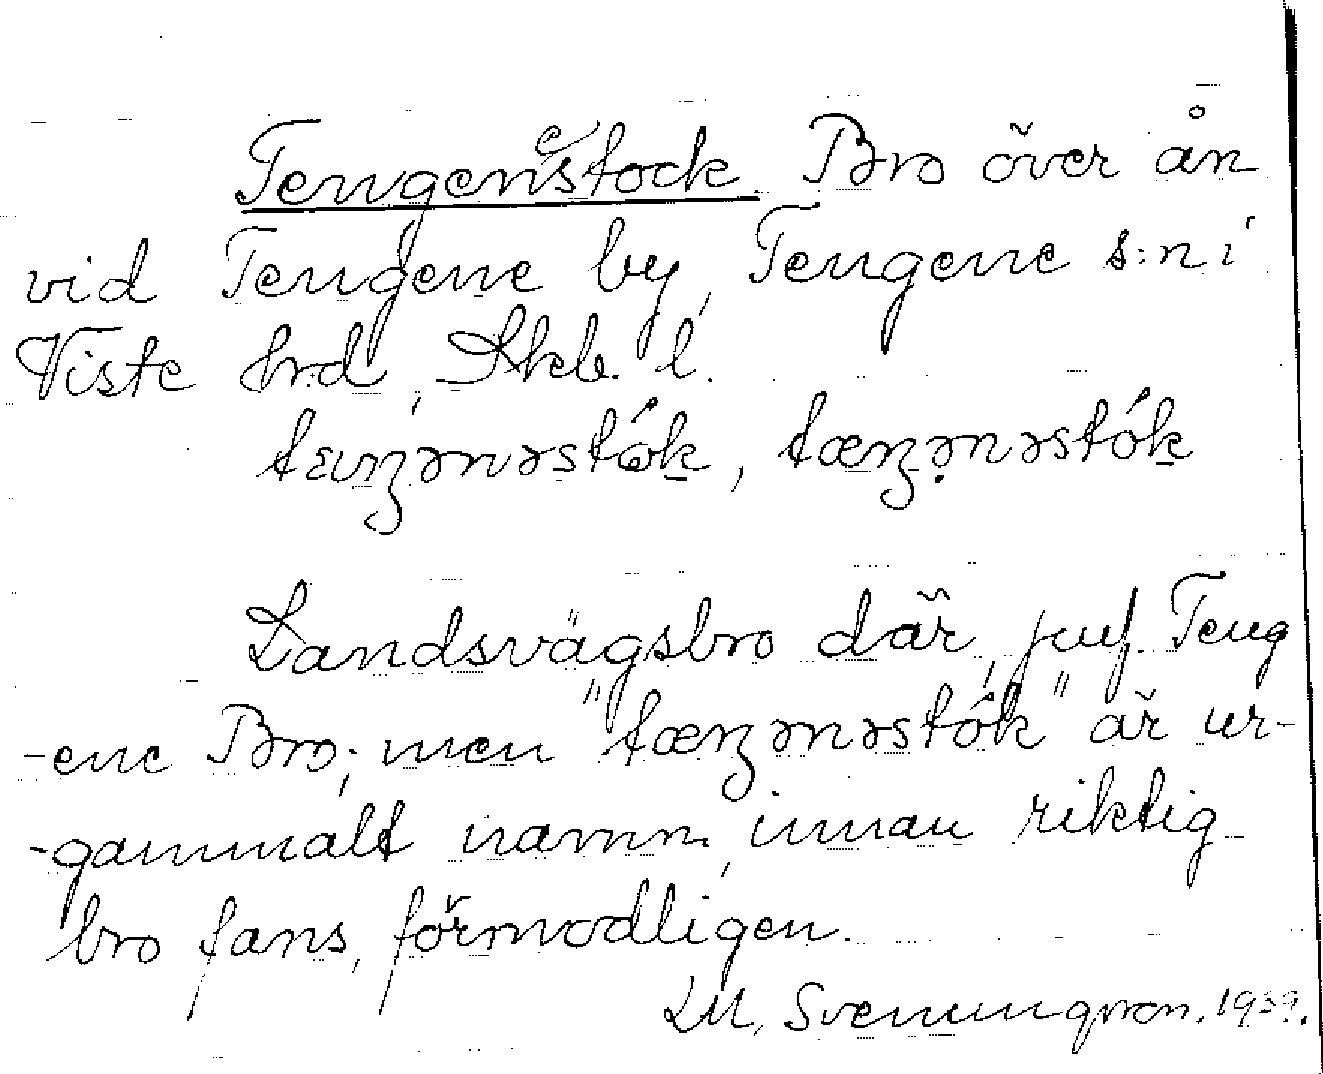 Tengenestock. Bro över ån
vid Tengene by, Tengene s:n i
Viste hrd, Skb. l.
tæŋənəstók, tæŋənəstók
Landsvägsbro där, Teng
-ene Bro; men "tæŋənəstók" är ur-
-gammalt namn, innan riktig
bro fans, förmodligen.
LM. Svenungsson. 1939.